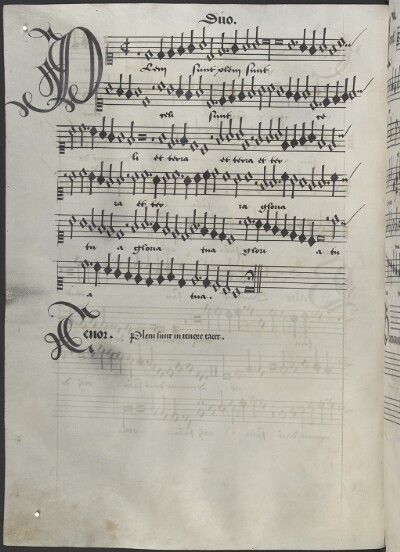 Duo.
Plem sunt plem sunt
celi sunt ce
li et terra et terra et ter
ra et ter ra gloria
tu a gloria tua glori a tu
a tua.
Tenor. Pleni sunt in tenore tacet.